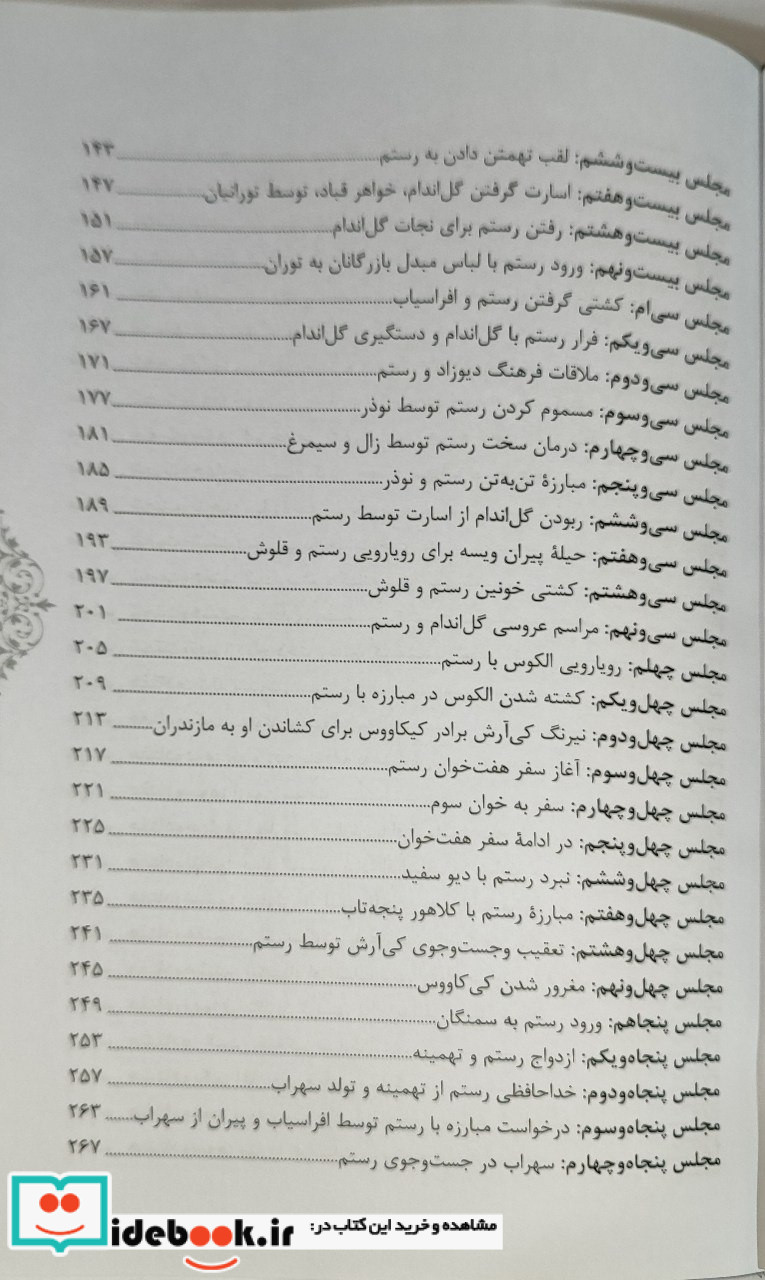 مجلس بیست‌وششم: لقب تهمتن دادن به رستم ۱۴۳
مجلس بیست‌وهفتم: اسارت گرفتن گل‌اندام، خواهر قباد، توسط تورانیان ۱۴۷
مجلس بیست‌وهشتم: رفتن رستم برای نجات گل‌اندام ۱۵۱
مجلس بیست‌ونهم: ورود رستم با لباس مبدل بازرگانان به توران ۱۵۷
مجلس سی‌ام: کشتی گرفتن رستم و افراسیاب ۱۶۱
مجلس سی‌ویکم: فرار رستم با گل‌اندام و دستگیری گل‌اندام ۱۶۷
مجلس سی‌ودوم: ملاقات فرهنگ دیوزاد و رستم ۱۷۱
مجلس سی‌وسوم: مسموم کردن رستم توسط نوذر ۱۷۷
مجلس سی‌وچهارم: درمان سخت رستم توسط زال و سیمرغ ۱۸۱
مجلس سی‌وپنجم: مبارزهٔ تن‌به‌تن رستم و نوذر ۱۸۵
مجلس سی‌وششم: ربودن گل‌اندام از اسارت توسط رستم ۱۸۹
مجلس سی‌وهفتم: حیلهٔ پیران ویسه برای رویارویی رستم و قلوش ۱۹۳
مجلس سی‌وهشتم: کشتی خونین رستم و قلوش ۱۹۷
مجلس سی‌ونهم: مراسم عروسی گل‌اندام و رستم ۲۰۱
مجلس چهلم: رویارویی الکوس با رستم ۲۰۵
مجلس چهل‌ویکم: کشته شدن الکوس در مبارزه با رستم ۲۰۹
مجلس چهل‌ودوم: نیرنگ کی‌آرش برادر کیکاووس برای کشاندن او به مازندران ۲۱۳
مجلس چهل‌وسوم: آغاز سفر هفت‌خوان رستم ۲۱۷
مجلس چهل‌وچهارم: سفر به خوان سوم ۲۲۱
مجلس چهل‌وپنجم: در ادامهٔ سفر هفت‌خوان ۲۲۵
مجلس چهل‌وششم: نبرد رستم با دیو سفید ۲۳۱
مجلس چهل‌وهفتم: مبارزهٔ رستم با کلاهور پنجه‌تاب ۲۳۵
مجلس چهل‌وهشتم: تعقیب وجست‌وجوی کی‌آرش توسط رستم ۲۴۱
مجلس چهل‌ونهم: مغرور شدن کی‌کاووس ۲۴۵
مجلس پنجاهم: ورود رستم به سمنگان ۲۴۹
مجلس پنجاه‌ویکم: ازدواج رستم و تهمینه ۲۵۳
مجلس پنجاه‌ودوم: خداحافظی رستم از تهمینه و تولد سهراب ۲۵۷
مجلس پنجاه‌وسوم: درخواست مبارزه با رستم توسط افراسیاب و پیران از سهراب ۲۶۳
مجلس پنجاه‌وچهارم: سهراب در جست‌وجوی رستم ۲۶۷
مشاهده و خرید این کتاب در: idebook.ir